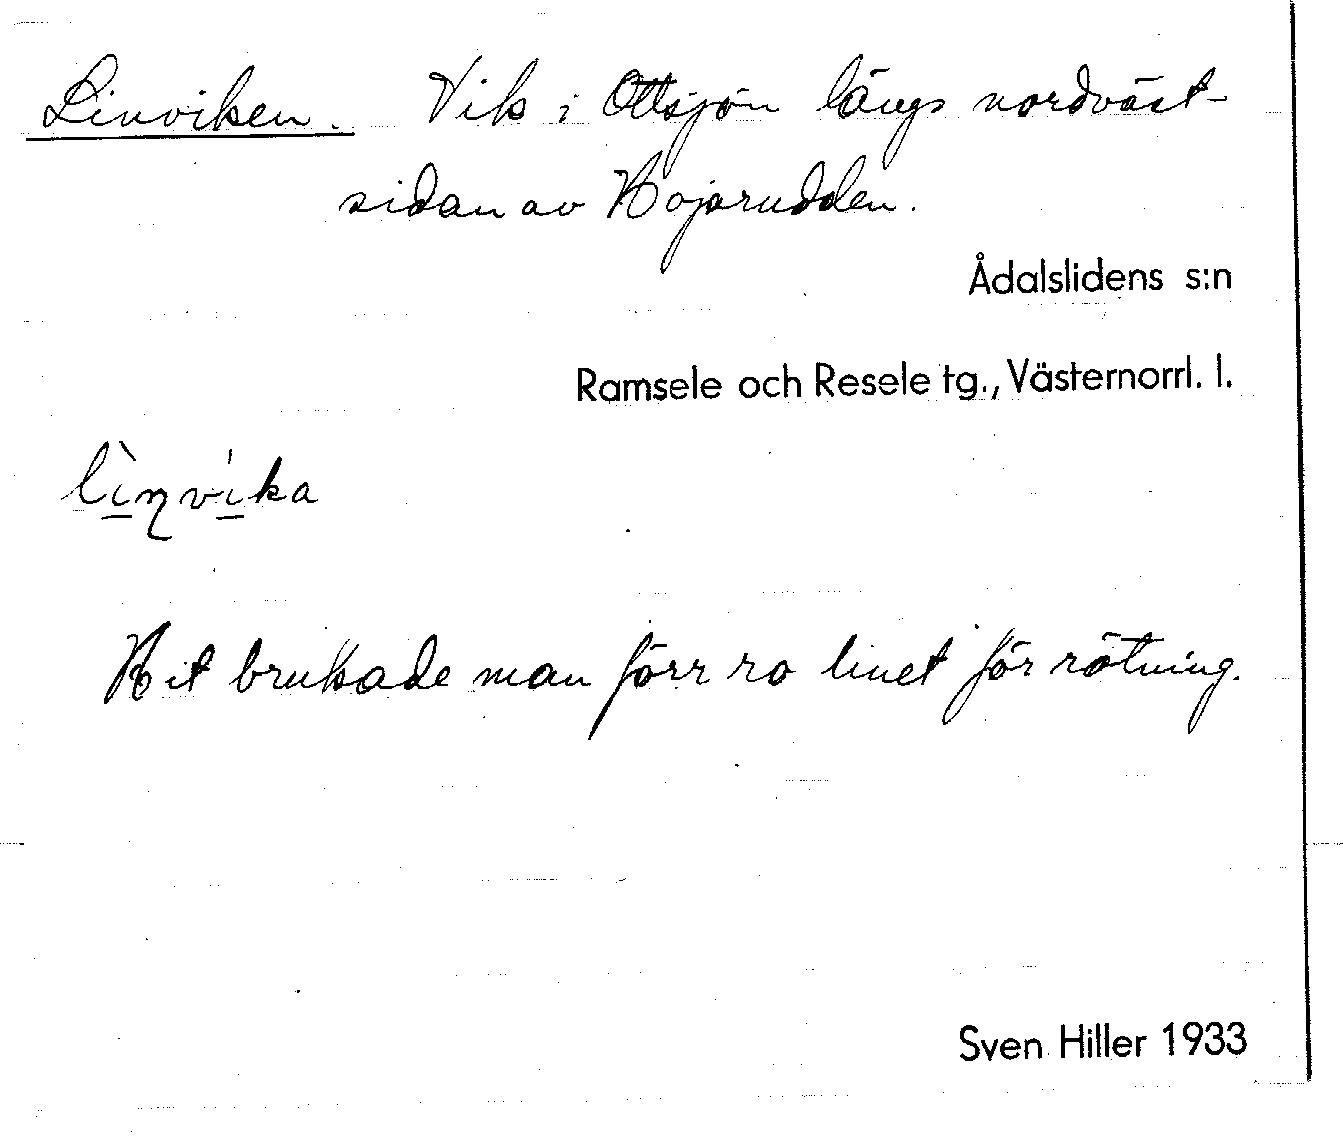 Linviken. Vik i Ottsjön längs nordväst-
sidan av Hojarudden.
Ådalslidens s:n
Ramsele och Resele tg., Västernorrl. l.
Hit brukade man förr ro linet för rötning.
Sven Hiller 1933